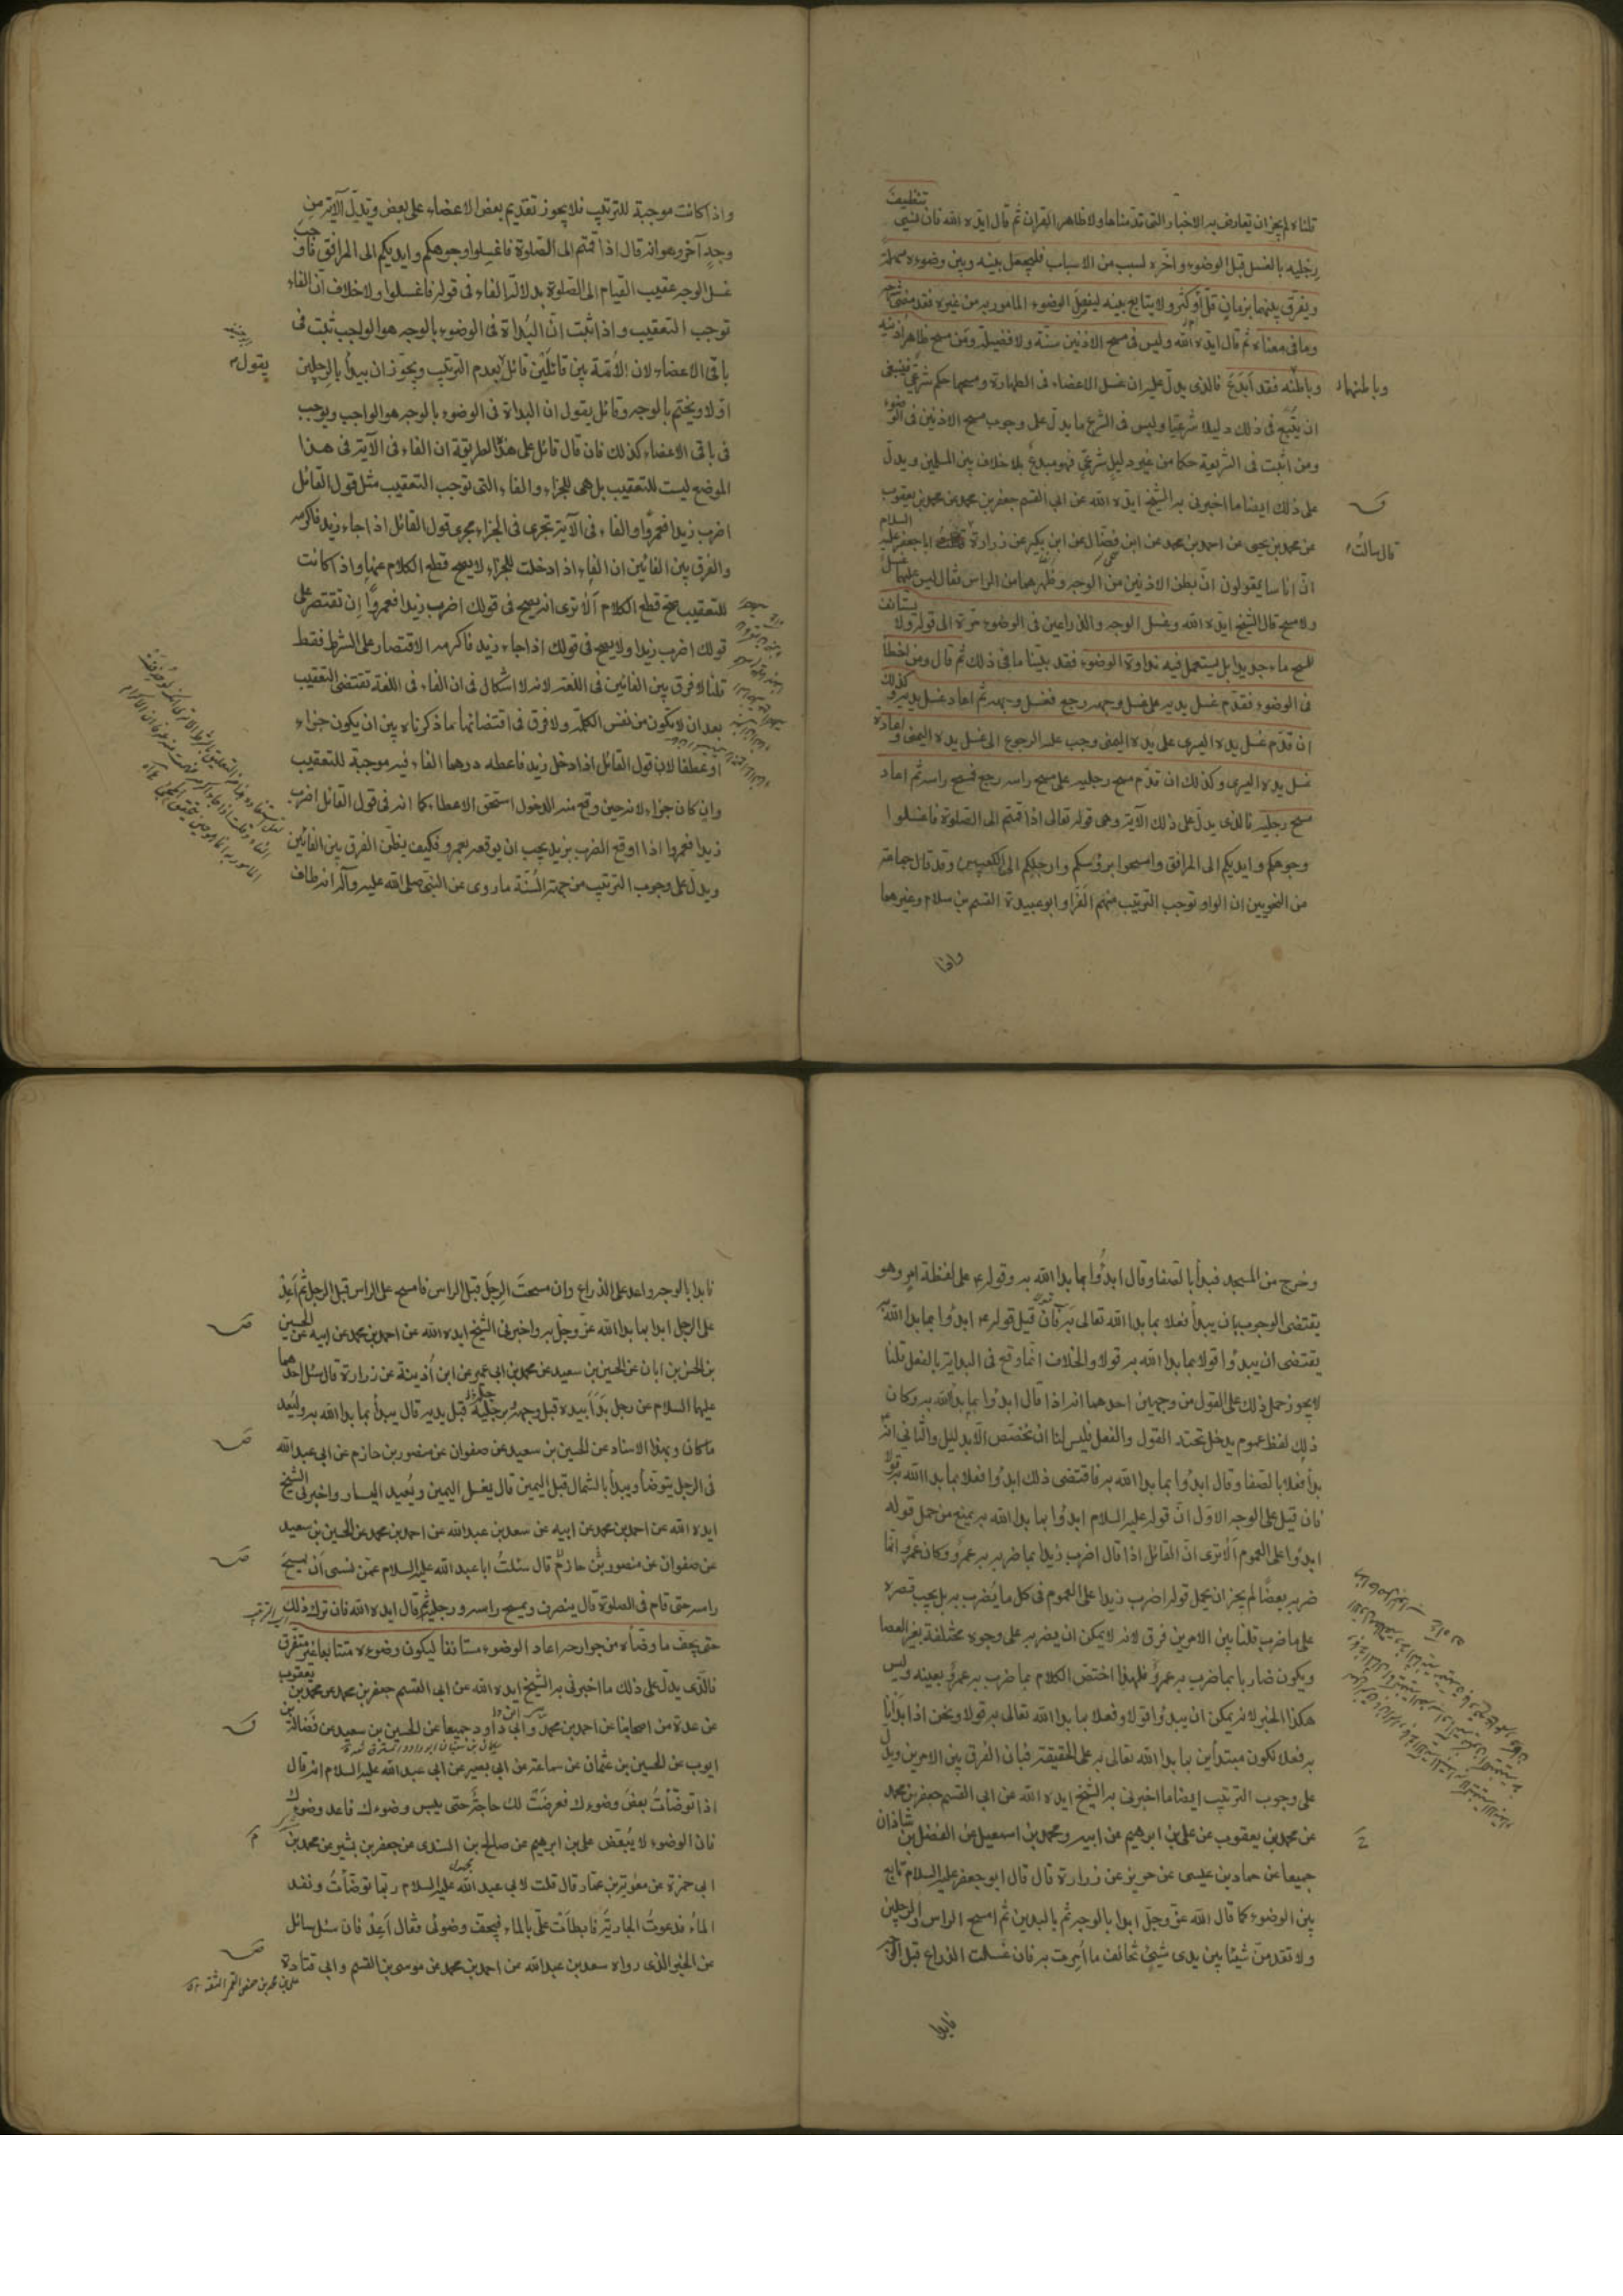 قلناه لم يجز ان تعارض به الاخبار التى قدمناها ولا ظاهر القران ثم قال ايده الله فان احب تنظيف
رجليه بالغسل قبل الوضوء واخره لسبب من الاسباب فليجعل بينه وبين وضوءه مهلة
ويفرق بينهما بزمان قل أو كثر ولا يتابع بينه ليفصل الوضوء المأمور به من غيره فقد مضى شرحه
وما فى معناه ثم قال ايده الله وليس فى مسح الاذنين سنة ولا فضيلة ومن مسح ظاهر اذنيه
وباطنهما
وباطنه فقد ابدع فالذى يدل عليه ان غسل الاعضاء فى الطهارة ومسحها حكم شرعى فينبغى
ان يتبع فى ذلك دليلا شرعيا وليس فى الشرع ما يدل على وجوب مسح الاذنين فى الوضوء
ومن اثبت فى الشريعة حكما من غير دليل شرعى فهو مبدع بلا خلاف بين المسلمين ويدل
على ذلك ايضا ما اخبرنى به الشيخ ايده الله عن ابى القسم جعفر بن محمد عن محمد بن يعقوب
عن محمد بن يحيى عن احمد بن محمد عن ابن فضال عن ابن بكير عن زرارة ابا جعفر عليه السلام
قال سالت
ان اناسا يقولون ان بطن الاذنين من الوجه وظهرهما من الراس فقال ليس عليهما غسل
ولا مسح قال الشيخ ايده الله ويغسل الوجه والذراعين فى الوضوء مرة الى قوله ولا يستانف
للمسح ماء جديدا بل يستعمل فيه نداوة الوضوء فقد بينا ما فى ذلك ثم قال ومن اخطأ
فى الوضوء فقدم غسل يديه على غسل وجهه رجع فغسل وجهه ثم اعاد غسل يديه وكذلك
ان قدم غسل يده اليسرى على يده اليمنى وجب عليه الرجوع الى غسل يده اليمنى واعادة
غسل يده اليسرى وكذلك ان قدم مسح رجليه على مسح راسه رجع فمسح راسه ثم اعاد
مسح رجليه فالذى يدل على ذلك الآية وهى قوله تعالى اذا قمتم الى الصلوة فاغسلوا
وجوهكم وايديكم الى المرافق وامسحوا برؤسكم وارجلكم الى الكعبين وقد قال جماعة
من النحويين ان الواو توجب الترتيب منهم الفرا وابو عبيدة القسم بن سلام وغيرهما
واذا
واذا كانت موجبة للترتيب فلا يجوز تقديم بعض الاعضاء على بعض وتدل الآية من
وجه آخر وهو انه قال اذا قمتم الى الصلوة فاغسلوا وجوهكم وايديكم الى المرافق فاوجب
غسل الوجه عقيب القيام الى الصلوة بدلالة الفاء فى قوله فاغسلوا ولا خلاف ان الفاء
توجب التعقيب واذا ثبت ان البداة فى الوضوء بالوجه هو الواجب ثبت فى
باقى الاعضاء لان الأمة بين قائلين قائل بعدم الترتيب ويجوز ان يبدأ بالرجلين
يقول
اولا ويختم بالوجه وقائل يقول ان البداة فى الوضوء بالوجه هو الواجب ويوجب
فى باقى الاعضاء كذلك فان قال قائل على هذه الطريقة ان الفاء فى الآية فى هذا
الموضع ليست للتعقيب بل هى للجزاء والفاء التى توجب التعقيب مثل قول القائل
اضرب زيدا فعمروا والفاء فى الآية تجرى فى الجزاء مجرى قول القائل اذا جاء زيد فاكرمه
والفرق بين الفائين ان الفاء اذا دخلت للجزاء لا يصح قطع الكلام عنها واذا كانت
للتعقيب يصح قطع الكلام ألا ترى انه يصح فى قولك اضرب زيدا فعمروا ان تقتصر على
قولك اضرب زيدا ولا يصح فى قولك اذا جاء زيد فاكرمه الاقتصار على الشرط فقط
قلنا لا فرق بين الفائين فى اللغة لانه لا اشكال فى ان الفاء فى اللغة تقتضى التعقيب
بعد ان لا يكون من نفس الكلمة ولا فرق فى اقتضائها ما ذكرناه بين ان يكون جزاء
او عطفا لان قول القائل اذا دخل زيد فاعطه درهما الفاء فيه موجبة للتعقيب
وان كان جزاء لانه حين وقع منه الدخول استحق الاعطاء كما انه فى قول القائل اضرب
زيدا فعمروا اذا اوقع الضرب بزيد يجب ان يوقعه بعمرو فكيف يظن الفرق بين الفائين
ويدل على وجوب الترتيب من جهة السنة ما روى عن النبى صلى الله عليه وآله انه طاف
وخرج من المسجد فبدأ بالصفا وقال ابدؤا بما بدا الله به وقوله ع على لفظة امر وهو
يقتضى الوجوب بان يبدأ فعلا بما بدا الله تعالى به فان قيل قوله ع ابدؤا بما بدا الله به
يقتضى ان يبدؤا قولا بما بدا الله به قولا والخلاف انما وقع فى البداية بالفعل قلنا
لا يجوز حمل ذلك على القول من وجهين احدهما انه اذا قال ابدؤا بما بدأ الله به وكان
ذلك لفظ عموم يدخل تحته القول والفعل فليس لنا ان نخصص الا بدليل والثانى انه
بدأ فعلا بالصفا وقال ابدؤا بما بدا الله به فاقتضى ذلك ابدؤا فعلا بما بدا الله به قولا
فان قيل على الوجه الاول ان قوله عليه السلام ابدؤا بما بدا الله به يمنع من حمل قوله
ابدؤا على العموم ألا ترى ان القائل اذا قال اضرب زيدا بما ضرب به عمرو وكان عمرو انما
ضربه بعصا لم يجز ان يحمل قوله اضرب زيدا على العموم فى كل ما يضرب به بل يجب قصره
على ما ضرب قلنا بين الامرين فرق لانه لا يمكن ان يضربه على وجوه مختلفة بغير العصا
ويكون ضاربا بما ضرب به عمرو فلهذا اختص الكلام بما ضرب به عمرو بعينه وليس
هكذا الخبر لانه يمكن ان يبدؤا قولا وفعلا بما بدا الله تعالى به قولا ونحن اذا بدأنا
به فعلا نكون مبتدأين بما بدا الله تعالى به على الحقيقة فبان الفرق بين الامرين ويدل
على وجوب الترتيب ايضا ما اخبرنى به الشيخ ايده الله عن ابى القسم جعفر بن محمد
عن محمد بن يعقوب عن على بن ابرهيم عن ابيه ومحمد بن اسمعيل عن الفضل بن شاذان
جميعا عن حماد بن عيسى عن حريز عن زرارة قال قال ابو جعفر عليه السلام تابع
بين الوضوء كما قال الله عز وجل ابدا بالوجه ثم باليدين ثم امسح الراس والرجلين
ولا تقدمن شيئا بين يدى شيئ تخالف ما أمرت به فان غسلت الذراع قبل الوجه
فابدا
فابدا بالوجه واعد على الذراع وان مسحت الرجل قبل الراس فامسح على الراس قبل الرجل ثم أعد
على الرجل ابدا بما بدا الله عز وجل به واخبرنى الشيخ ايده الله عن احمد بن محمد عن ابيه عن الحسين
بن الحسن بن ابان عن الحسين بن سعيد عن محمد بن ابى عمير عن ابن أذينة عن زرارة قال سئل احدهما
عليهما السلام عن رجل بدأ بيده قبل وجهه وبرجليه قبل يديه قال يبدأ بما بدا الله به وليعد
ما كان وبهذا الاسناد عن الحسين بن سعيد عن صفوان عن منصور بن حازم عن ابى عبد الله
فى الرجل يتوضأ ويبدأ بالشمال قبل اليمين قال يغسل اليمين ويعيد اليسار واخبرنى الشيخ
ايده الله عن احمد بن محمد عن ابيه عن سعد بن عبد الله عن احمد بن محمد عن الحسين بن سعيد
عن صفوان عن منصور بن حازم قال سئلت ابا عبد الله عليه السلام عمن نسى أن يمسح
راسه حتى قام فى الصلوة قال ينصرف ويمسح راسه ورجليه ثم قال ايده الله فان ترك ذلك
حتى يجف ما وضأه من جوارحه اعاد الوضوء مستانفا ليكون وضوءه متتابعا غير متفرق
فالذى يدل على ذلك ما اخبرنى به الشيخ ايده الله عن ابى القسم جعفر بن محمد عن محمد بن يعقوب
عن عدة من اصحابنا عن احمد بن محمد وابى داود جميعا عن الحسين بن سعيد عن فضالة بن
ايوب عن الحسين بن عثمان عن سماعة عن ابى بصير عن ابى عبد الله عليه السلام انه قال
اذا توضأت بعض وضوءك فعرضت لك حاجة حتى ييبس وضوءك فاعد وضوءك
فان الوضوء لا يبعض على بن ابرهيم عن صالح بن السندى عن جعفر بن بشير عن محمد بن
ابى حمزة عن معوية بن عمار قال قلت لابى عبد الله عليه السلام ربما توضأت ونفد
الماء فدعوت الجارية فابطأت على بالماء فيجف وضوئى فقال أعد فان سئل سائل
عن الخبر الذى رواه سعد بن عبد الله عن احمد بن محمد عن موسى بن القسم وابى قتادة